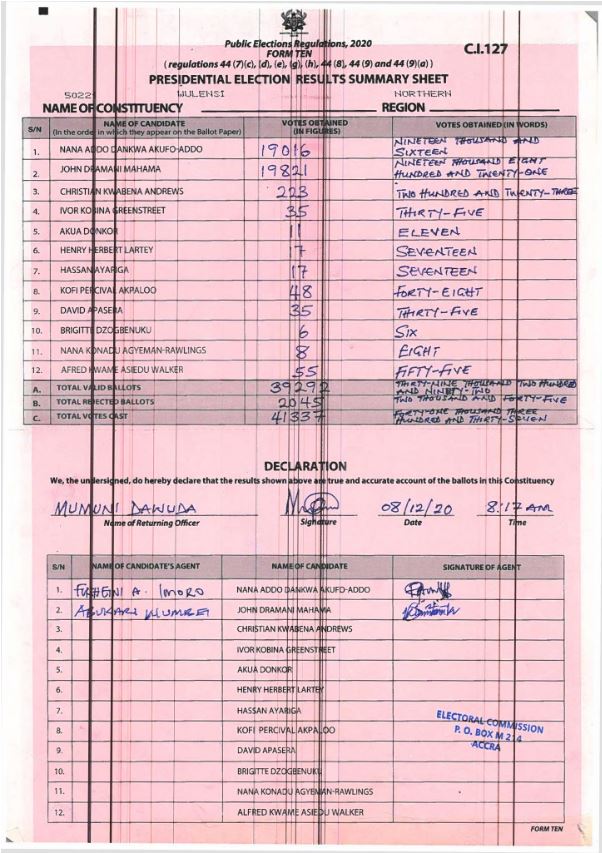 Public Elections Regulations, 2020
FORM TEN
C.I.127
(regulations 44 (7)(c), (d), (e), (g), (h), 44 (8), 44 (9) and 44 (9)(a))
PRESIDENTIAL ELECTION RESULTS SUMMARY SHEET
WULENSI NORTHERN
NAME OF CONSTITUENCY REGION
S/N NAME OF CANDIDATE (In the order in which they appear on the Ballot Paper) VOTES OBTAINED (IN FIGURES) VOTES OBTAINED (IN WORDS)
1. NANA ADDO DANKWA AKUFO-ADDO 19016 NINETEEN THOUSAND AND SIXTEEN
2. JOHN DRAMANI MAHAMA 19821 NINETEEN THOUSAND EIGHT HUNDRED AND TWENTY-ONE
3. CHRISTIAN KWABENA ANDREWS 223 TWO HUNDRED AND TWENTY-THREE
4. IVOR KOBINA GREENSTREET 35 THIRTY-FIVE
5. AKUA DONKOR 11 ELEVEN
6. HENRY HERBERT LARTEY 17 SEVENTEEN
7. HASSAN AYARIGA 17 SEVENTEEN
8. KOFI PERCIVAL AKPALOO 48 FORTY-EIGHT
9. DAVID APASERA 35 THIRTY-FIVE
10. BRIGITTE DZOGBENUKU 6 SIX
11. NANA KONADU AGYEMAN-RAWLINGS 8 EIGHT
12. AFRED KWAME ASIEDU WALKER 55 FIFTY-FIVE
A. TOTAL VALID BALLOTS 39292 THIRTY-NINE THOUSAND TWO HUNDRED AND NINETY-TWO
B. TOTAL REJECTED BALLOTS 2045 TWO THOUSAND AND FORTY-FIVE
C. TOTAL VOTES CAST 41337 FORTY-ONE THOUSAND THREE HUNDRED AND THIRTY-SEVEN
DECLARATION
We, the undersigned, do hereby declare that the results shown above are true and accurate account of the ballots in this Constituency
MUMUNI DAWUDA 08/12/20 8:17 AM
Name of Returning Officer Signature Date Time
S/N NAME OF CANDIDATE'S AGENT NAME OF CANDIDATE SIGNATURE OF AGENT
1. A. IMORO NANA ADDO DANKWA AKUFO-ADDO
2. ABUKARI JOHN DRAMANI MAHAMA
3. CHRISTIAN KWABENA ANDREWS
4. IVOR KOBINA GREENSTREET
5. AKUA DONKOR
6. HENRY HERBERT LARTEY
7. HASSAN AYARIGA
8. KOFI PERCIVAL AKPALOO
9. DAVID APASERA
10. BRIGITTE DZOGBENUKU
11. NANA KONADU AGYEMAN-RAWLINGS
12. ALFRED KWAME ASIEDU WALKER
ELECTORAL COMMISSION
P. O. BOX M 214
ACCRA
FORM TEN